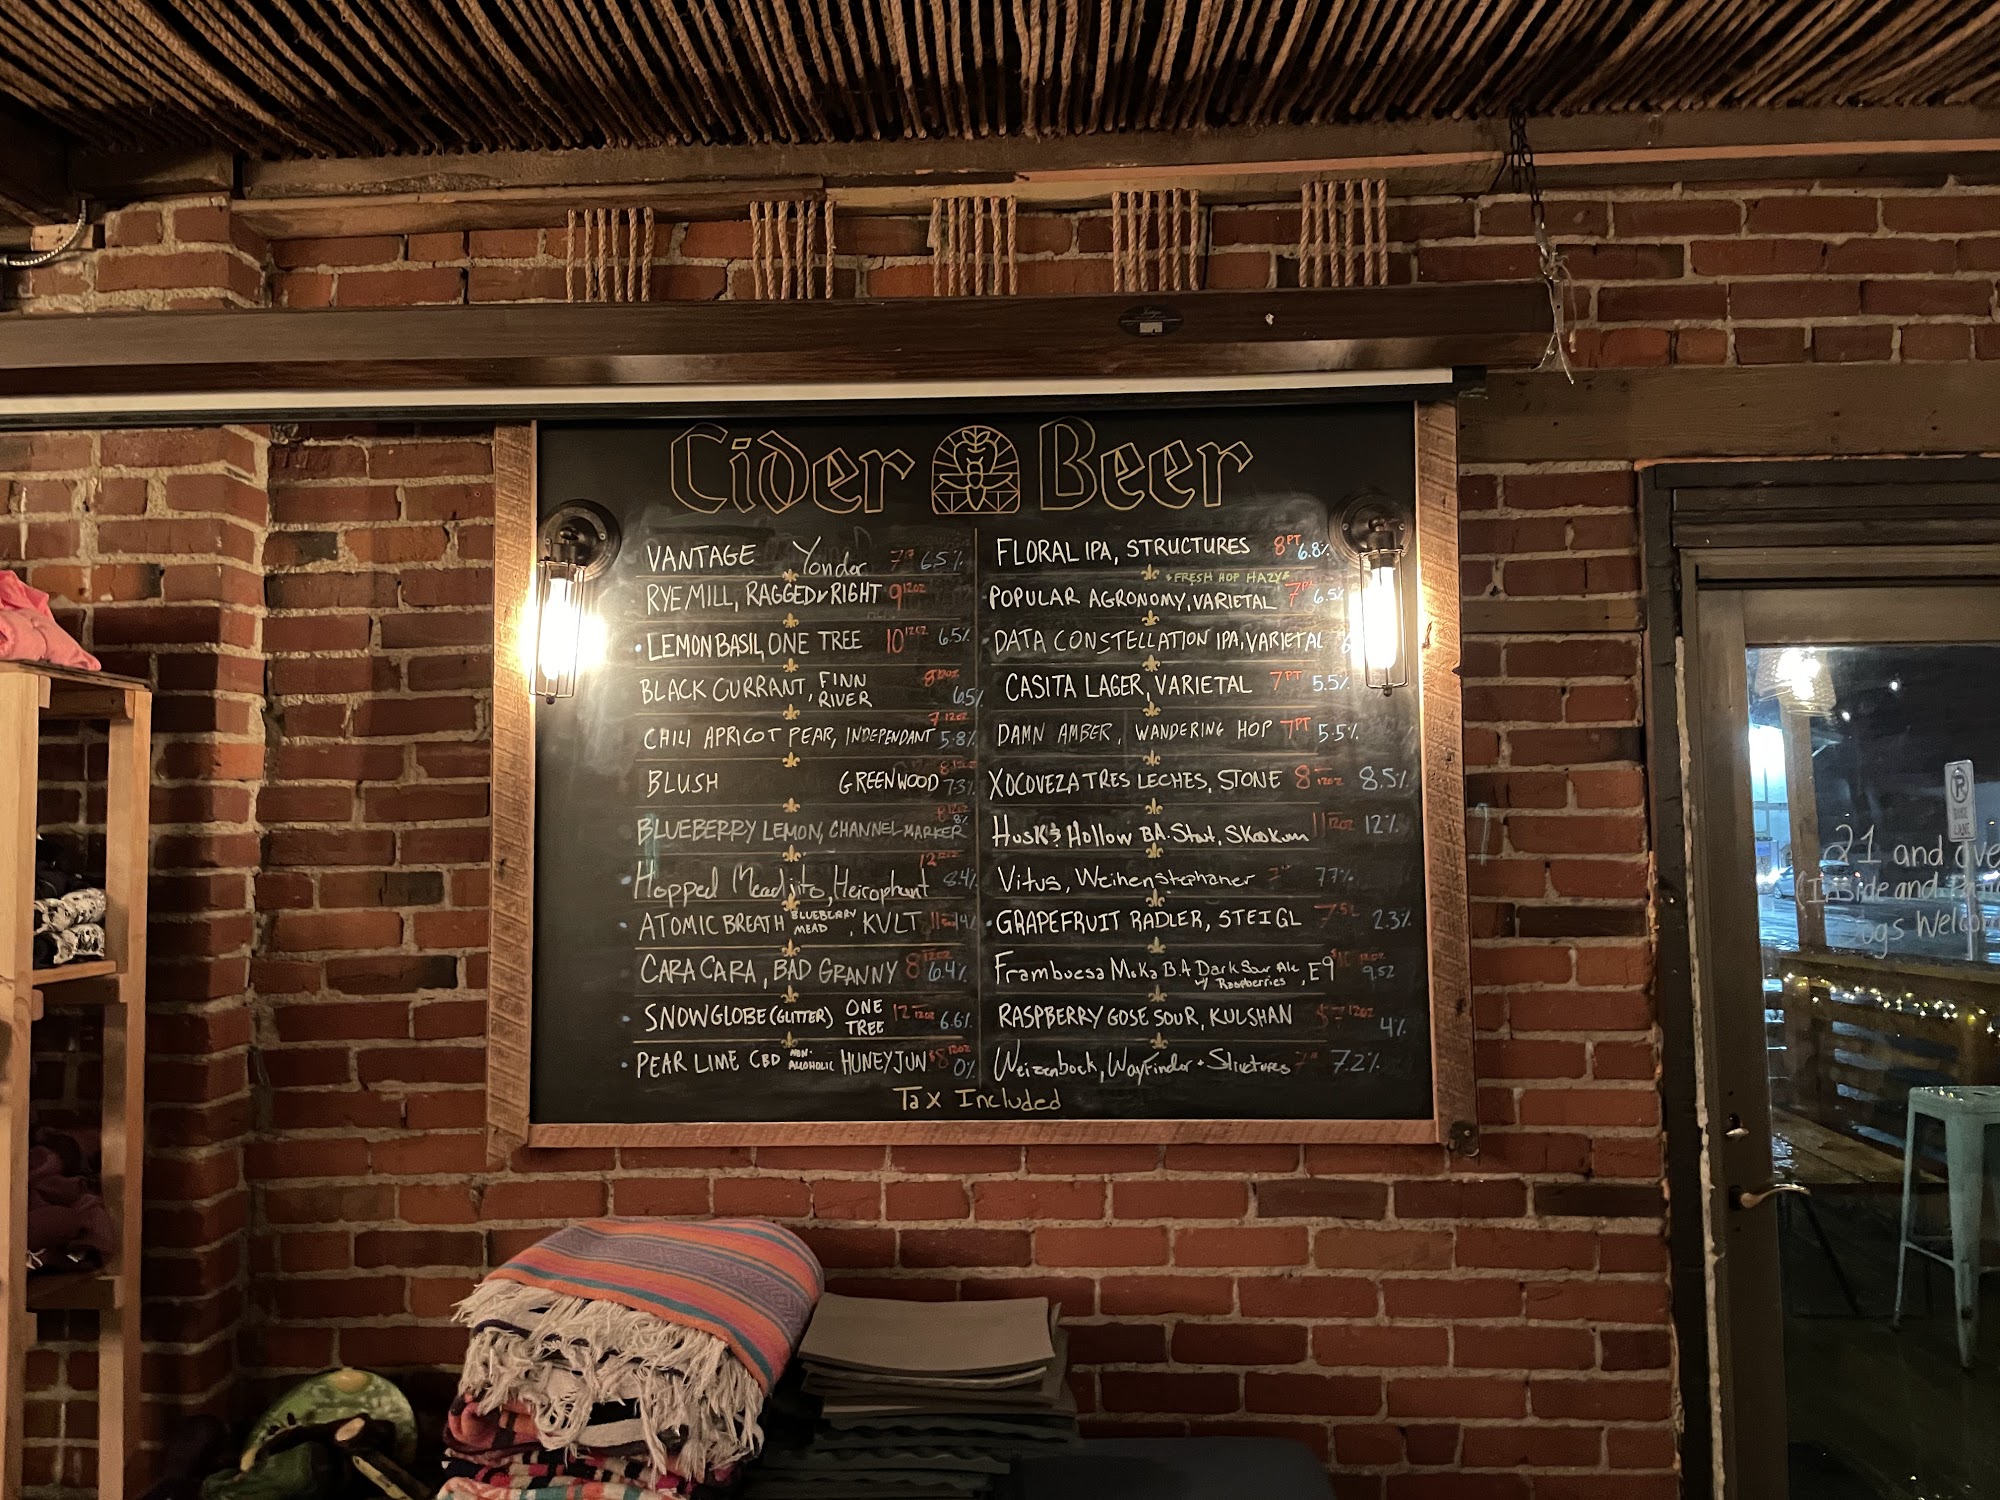 Cider Beer
VANTAGE Yonder 7 6.5%
RYE MILL, RAGGED & RIGHT 9 12oz
• LEMON BASIL, ONE TREE 10 12oz 6.5%
BLACK CURRANT, FINN RIVER 8 12oz 6.5%
CHILI APRICOT PEAR, INDEPENDANT 7 12oz 5.8%
BLUSH GREENWOOD 8 12oz 7.3%
BLUEBERRY LEMON, CHANNEL MARKER 8 12oz 8%
• Hopped Meadjito, Heirophant 12 8.4%
• ATOMIC BREATH BLUEBERRY MEAD, KVLT 11 14%
CARA CARA, BAD GRANNY 8 12oz 6.4%
• SNOWGLOBE (GLITTER) ONE TREE 12 12oz 6.6%
• PEAR LIME CBD NON-ALCOHOLIC HUNEYJUN $8 12oz 0%
FLORAL IPA, STRUCTURES 8 PT 6.8%
* FRESH HOP HAZY *
• POPULAR AGRONOMY, VARIETAL 7 PT 6.5%
• DATA CONSTELLATION IPA, VARIETAL
CASITA LAGER, VARIETAL 7 PT 5.5%
DAMN AMBER, WANDERING HOP 7 PT 5.5%
XOCOVEZA TRES LECHES, STONE 8 12oz 8.5%
Husk & Hollow B.A. Stout, Skookum 11 12oz 12%
Vitus, Weihenstephaner 7 7.7%
• GRAPEFRUIT RADLER, STEIGL 7 .5L 2.3%
Frambuesa Moka B.A Dark Sour Ale w/ Raspberries, E9 12oz 9.52
RASPBERRY GOSE SOUR, KULSHAN $7 12oz 4%
Weizenbock, Wayfinder + Structures 7 7.2%
Tax Included
21 and ove
(Inside and Patio
ogs Welcom